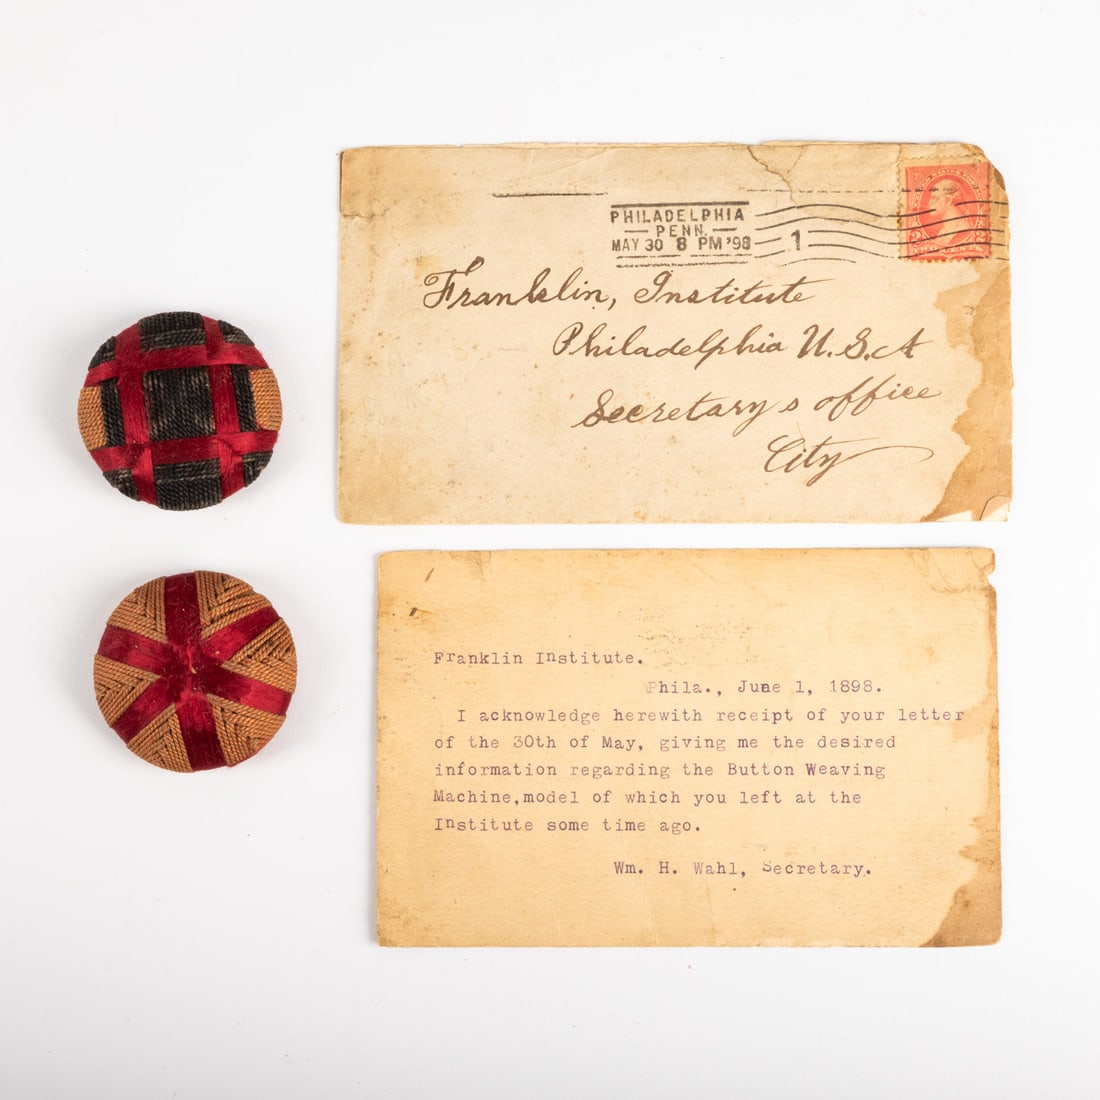 PHILADELPHIA
PENN.
MAY 30 8 PM '98
1
Franklin, Institute
Philadelphia U.S.A
Secretary s office
City
Franklin Institute.
Phila., June 1, 1898.
I acknowledge herewith receipt of your letter
of the 30th of May, giving me the desired
information regarding the Button Weaving
Machine,model of which you left at the
Institute some time ago.
Wm. H. Wahl, Secretary.